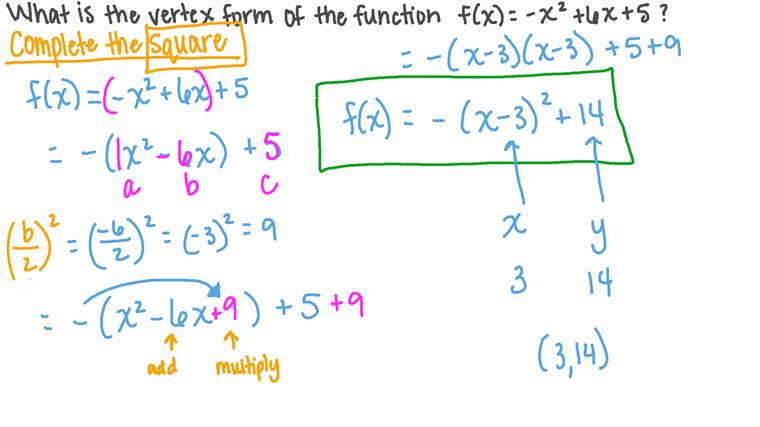 What is the vertex form of the function f(x) = -x² + 6x + 5 ?
Complete the Square
f(x) = (-x² + 6x) + 5
= -(1x² - 6x) + 5
a b c
(b/2)² = (-6/2)² = (-3)² = 9
= -(x² - 6x + 9) + 5 + 9
add multiply
= -(x-3)(x-3) + 5 + 9
f(x) = -(x-3)² + 14
x y
3 14
(3,14)